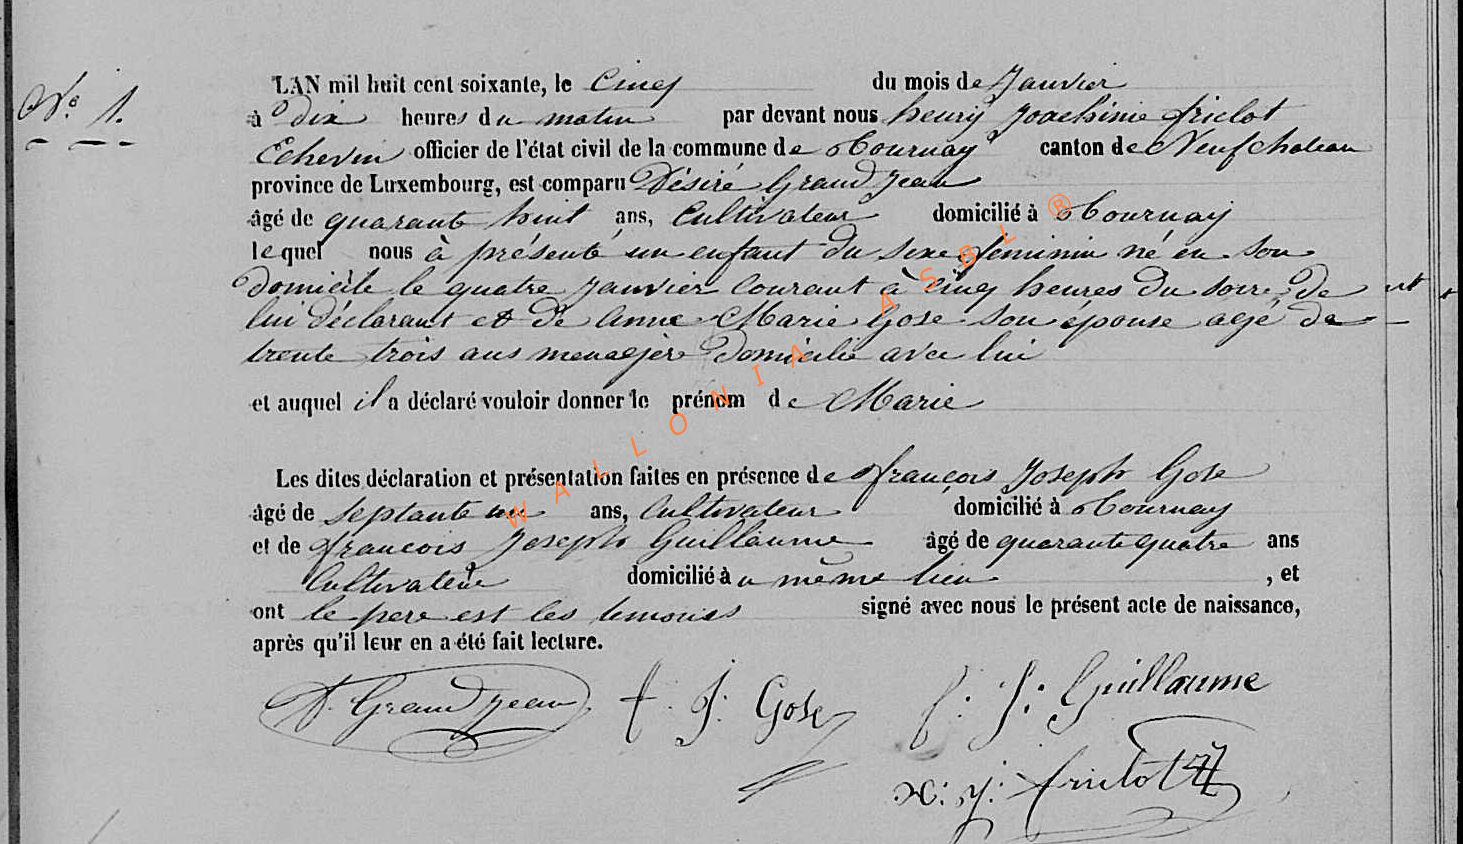 N° 1.
L'AN mil huit cent soixante, le cinq du mois de Janvier
à dix heures du matin par devant nous henry Joachime frictot
Echevin officier de l'état civil de la commune de Tournay canton de Neufchateau
province de Luxembourg, est comparu Désiré GrandJean
âgé de quarante huit ans, Cultivateur domicilié à Tournay
lequel nous à présenté un enfant du sexe feminin né en son
domicile le quatre Janvier courant à cinq heures du soire de
lui déclarant et de Anne Marie Gose son épouse agé de
trente trois ans menagère domicilié avec lui
et auquel il a déclaré vouloir donner le prénom de Marie
Les dites déclaration et présentation faites en présence de françois Joseph Gose
âgé de septante un ans, Cultivateur domicilié à Tournay
et de francois Joseph Guillaume âgé de quarante quatre ans
Cultivateur domicilié au même lieu , et
ont le pere est les temoins signé avec nous le présent acte de naissance,
après qu'il leur en a été fait lecture.
D. GrandJean f. J. Gose f. J. Guillaume
h. j. frictot
WALLONIA ASBL ®